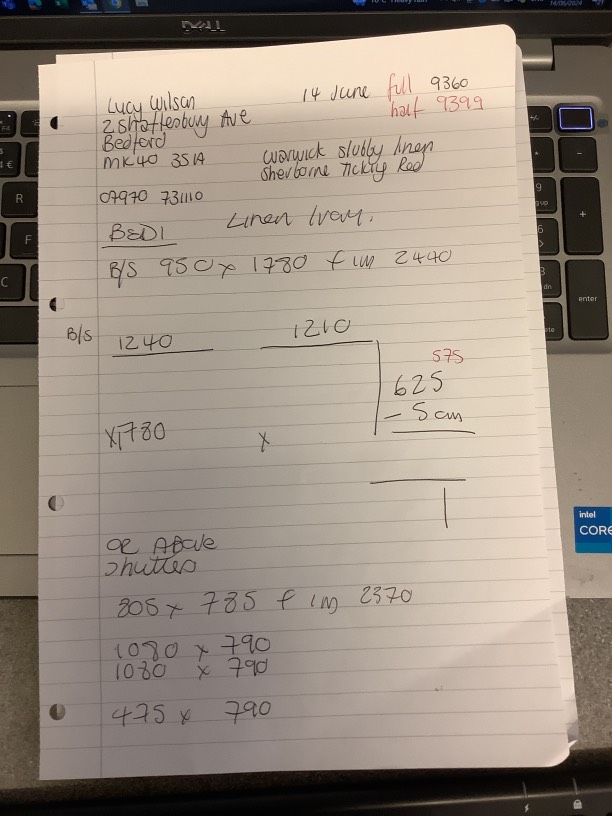 DELL
14/06/2024
Lucy Wilson
14 June full 9360
2 Shaftesbury Ave
half 9399
Bedford
MK40 3SA
Warwick slubby linen
Sherborne Ticking Red
07970 731110
BED1
Linen Ivory.
B/S 950 x 1780 f im 2440
B/S 1240
1210
575
625
- 5cm
x1780
x
OR Above
Shutters
805 x 785 f im 2370
1080 x 790
1080 x 790
475 x 790
intel
CORE
enter